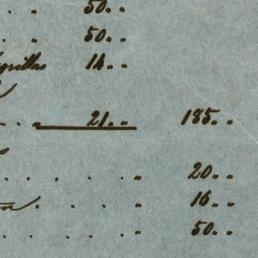 . „ 50. „
. „ 50. „
14. „
. . 21. „ 185. „
. . . . „ 20. „
. . . „ 16. „
. . . . „ 50. „